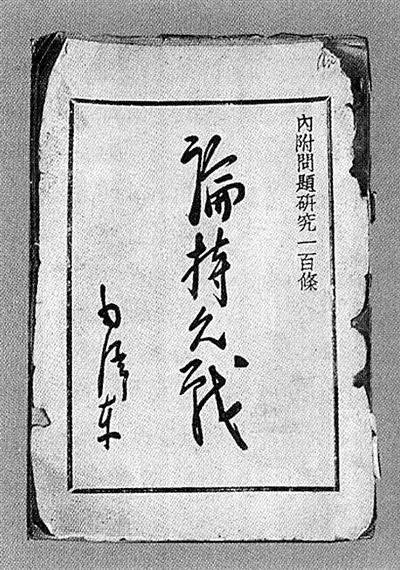 內附問題研究一百條
論持久戰
毛澤东